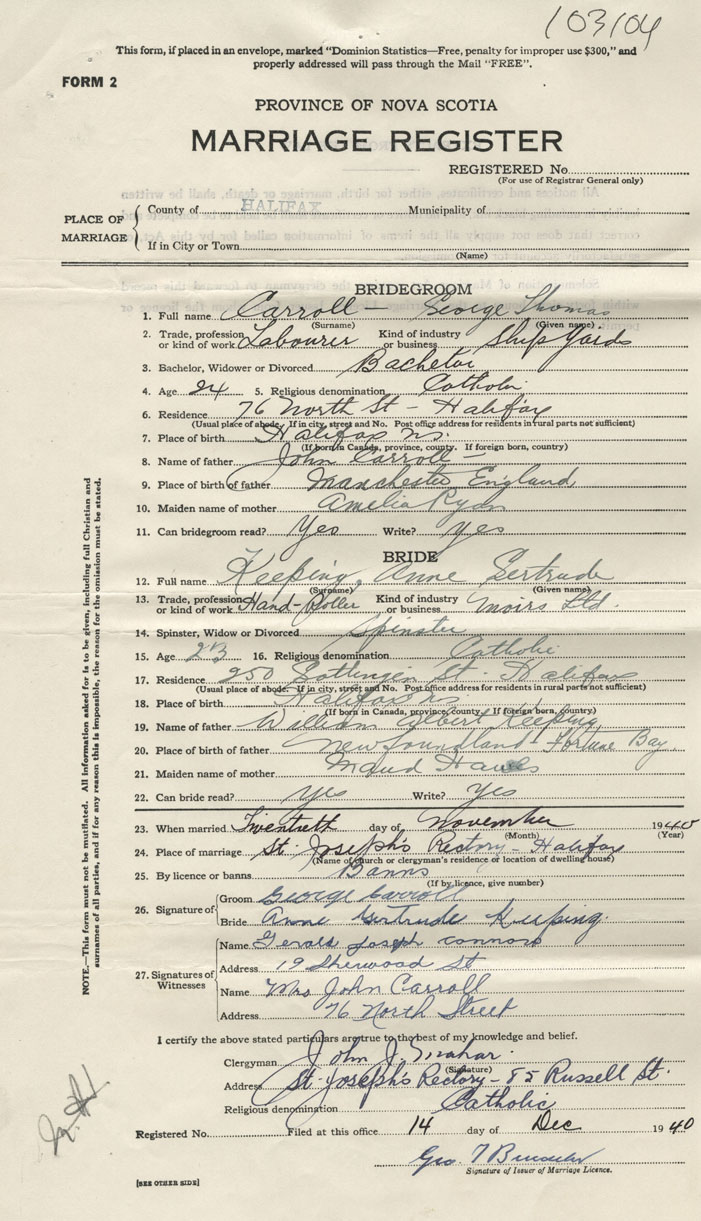 103104
This form, if placed in an envelope, marked "Dominion Statistics—Free, penalty for improper use $300," and
properly addressed will pass through the Mail "FREE".
FORM 2
PROVINCE OF NOVA SCOTIA
MARRIAGE REGISTER
REGISTERED No.
(For use of Registrar General only)
PLACE OF MARRIAGE
County of HALIFAX Municipality of
If in City or Town
(Name)
BRIDEGROOM
1. Full name Carroll — George Thomas
(Surname) (Given name)
2. Trade, profession or kind of work Labourer Kind of industry or business Ship Yards
3. Bachelor, Widower or Divorced Bachelor
4. Age 24 5. Religious denomination Catholic
6. Residence 76 North St - Halifax
(Usual place of abode. If in city, street and No. Post office address for residents in rural parts not sufficient)
7. Place of birth Halifax ns.
(If born in Canada, province, county. If foreign born, country)
8. Name of father John Carroll
9. Place of birth of father Manchester England
10. Maiden name of mother Amelia Ryan
11. Can bridegroom read? Yes Write? Yes
BRIDE
12. Full name Keeping, Anne Gertrude
(Surname) (Given name)
13. Trade, profession or kind of work Hand-Roller Kind of industry or business Moirs Ltd.
14. Spinster, Widow or Divorced Spinster
15. Age 23 16. Religious denomination Catholic
17. Residence 250 St. Halifax
(Usual place of abode. If in city, street and No. Post office address for residents in rural parts not sufficient)
18. Place of birth Halifax ns.
(If born in Canada, province, county. If foreign born, country)
19. Name of father William Albert Keeping
20. Place of birth of father Newfoundland - Fortune Bay
21. Maiden name of mother Maud
22. Can bride read? Yes Write? Yes
23. When married Twentieth day of November 1940
(Month) (Year)
24. Place of marriage St. Joseph's Rectory - Halifax
(Name of church or clergyman's residence or location of dwelling house)
25. By licence or banns Banns
(If by licence, give number)
26. Signature of
Groom George Carroll
Bride Anne Gertrude Keeping.
27. Signatures of Witnesses
Name Gerald Joseph Connors
Address 19 Sherwood St
Name Mrs John Carroll
Address 76 North Street
I certify the above stated particulars are true to the best of my knowledge and belief.
Clergyman John J.
(Signature)
Address St. Joseph's Rectory - 85 Russell St.
Religious denomination Catholic
Registered No. Filed at this office 14 day of Dec 1940
Geo. T
Signature of Issuer of Marriage Licence.
[SEE OTHER SIDE]
NOTE.—This form must not be mutilated. All information asked for is to be given, including full Christian and
surnames of all parties, and if for any reason this is impossible, the reason for the omission must be stated.